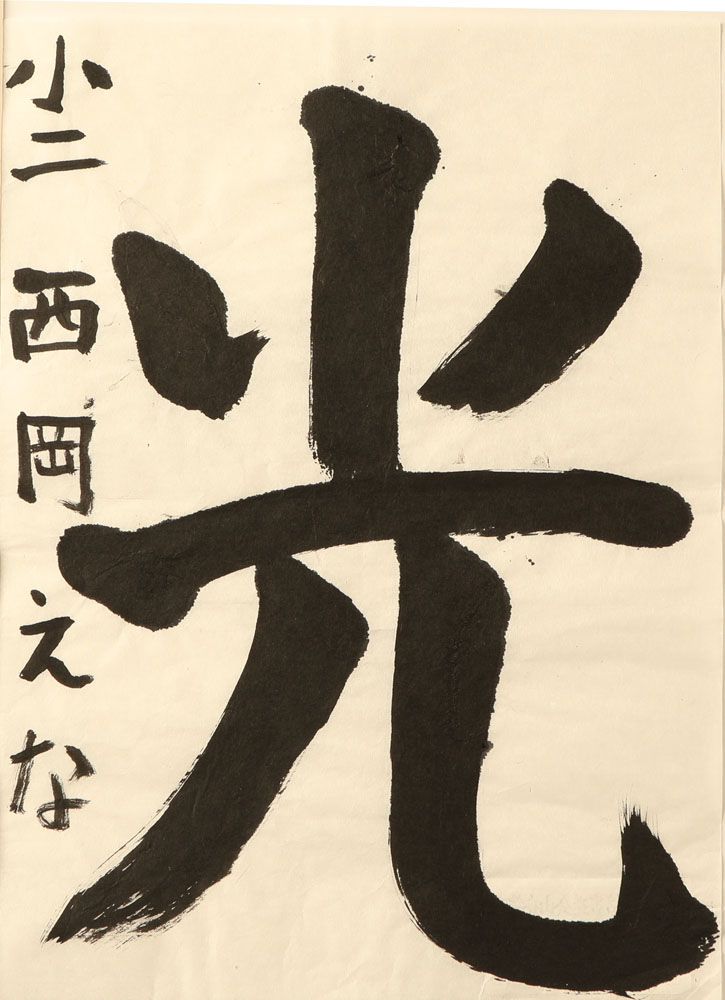 光
小二 西岡 えな